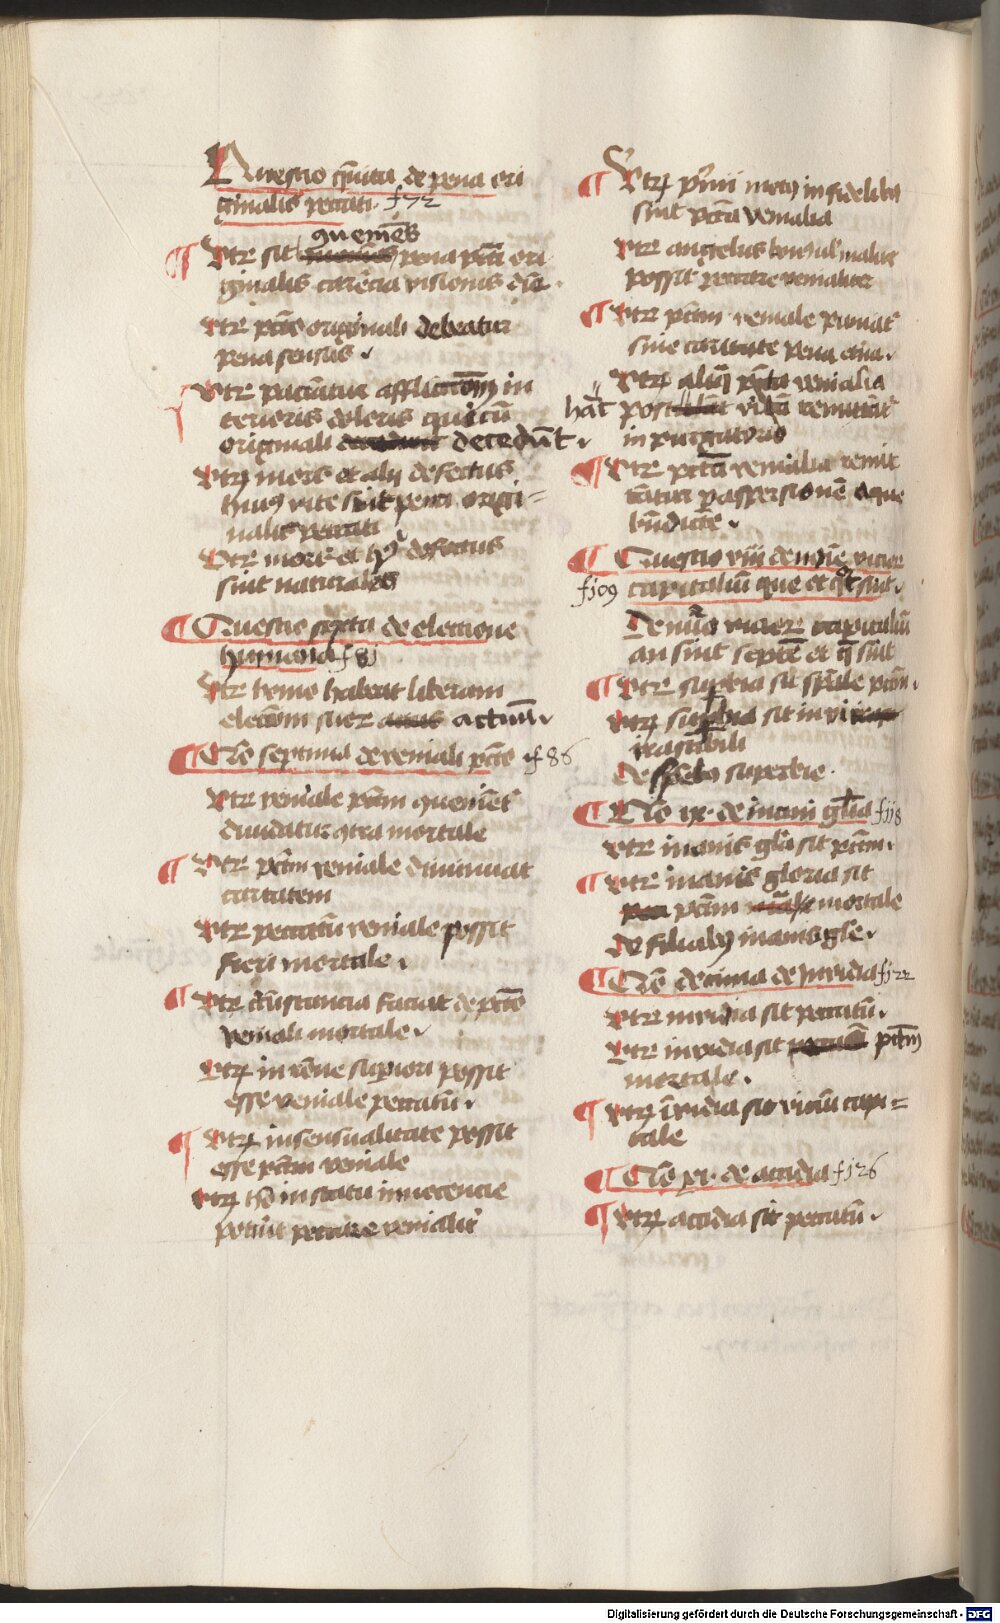 Questio quinta de pena ori
ginalis peccati f 72
queniens
Vtrum sit pena pcti ori
ginalis carencia visionis diue
vtrum pcto originali debeatur
pena sensus
vtrum paciantur afflictiom in
terioris doloris qui cu
originali decedut
vtrum mors et alij defectus
huius vite sint pena origi=
nalis peccati
Vtrum mors et hi defectus
sint naturales
Questio sexta de electione
humana f 81
Vtrum homo habeat liberam
electiom suor actuu
Qo septima de veniali pcto f 86
Vtrum veniale pctm quenient
diuidatur 9tra mortale
vtrum pctm veniale diminuat
caritatem
vtrum peccatu veniale possit
fieri mortale
vtrum circustancia faciat de pcto
veniali mortale
vtrum in rone supiori possit
esse veniale peccatu
vtrum in sensualitate possit
esse pctm veniale
vtrum ho in statu innocencie
potuit peccare venialit
Vtrum primi motus in fidelibus
sint pcta venialia
vtrum angelus bonus ul malus
possit peccare venialiter
vtrum pctm veniale puniat
sine caritate pena etna
vtrum aliq pcta venialia
hac post vita remittat
in purgatorio
vtrum pcta venialia remit
tatur p aspersione aque
bndicte
Questio viij de nuo vicior
f 109 capitaliu que et qt sint
De nuo vicior capitaliu
an sint septe et q sint
vtrum supbia sit spale pctm
vtrum supbia sit in vi
irascibili
de spebus superbie
Qo ix de inani glia f 118
vtrum inanis gla sit pctm
vtrum inanis gloria sit
pctm mortale
de filiabus inanis gle
Qo decima de Inuidia f 122
vtrum inuidia sit peccatu
vtrum inuidia sit pctm
mortale
vtrum inuidia sit viciu capi=
tale
Qo xi de accidia f 126
vtrum accidia sit peccatu
Digitalisierung gefördert durch die Deutsche Forschungsgemeinschaft - DFG